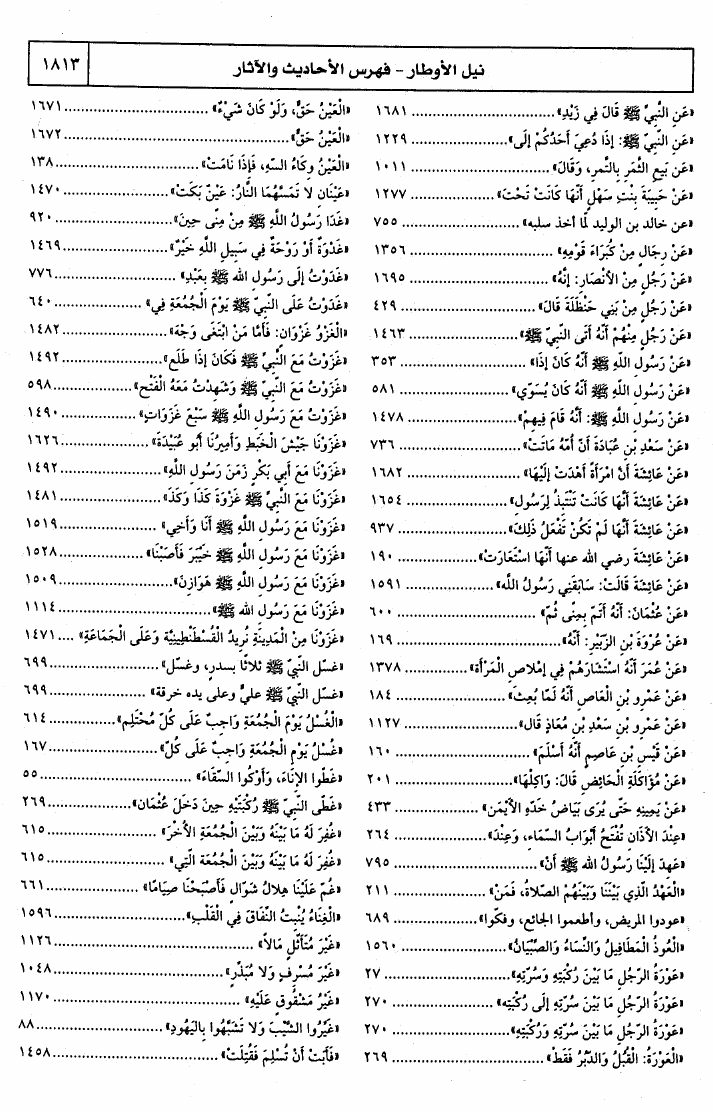 نيل الأوطار - فهرس الأحاديث والآثار ١٨١٣
«عَنِ النَّبِيِّ ﷺ قَالَ فِي زَيْدٍ» ١٦٨١
«عَنِ النَّبِيِّ ﷺ: إِذَا دُعِيَ أَحَدُكُمْ إِلَى» ١٢٢٩
«عَن بَيْعِ الثَّمَرِ بِالتَّمرِ، وَقَالَ» ١٠١١
«عَنْ حَبِيبَةَ بِنْتِ سَهْلٍ أَنَّهَا كَانَتْ تَحْتَ» ١٢٧٧
«عن خالد بن الوليد لمَّا أخذ سلبه» ٧٥٥
«عَنْ رِجَالٍ مِنْ كُبَرَاءَ قَوْمِهِ» ١٣٥٦
«عَنْ رَجُلٍ مِنَ الأَنْصَارِ: إِنَّهُ» ١٦٩٥
«عَنْ رَجُلٍ مِنْ بَنِي حَنْظَلَةَ قَالَ» ٤٢٩
«عَنْ رَجُلٍ مِنْهُمْ أَنَّهُ أَتَى النَّبِيَّ ﷺ» ١٤٦٣
«عَنْ رَسُولِ اللَّهِ ﷺ أَنَّهُ كَانَ إِذَا» ٣٥٣
«عَنْ رَسُولِ اللَّهِ ﷺ أَنَّهُ كَانَ يُسَوِّي» ٥٨١
«عَنْ رَسُولِ اللَّهِ ﷺ: أَنَّهُ قَامَ فِيهِمْ» ١٤٧٨
«عَنْ سَعْدِ بْنِ عُبَادَةَ أَنَّ أُمَّهُ مَاتَتْ» ٧٣٦
«عَنْ عَائِشَةَ أَنَّ امْرَأَةً أَهْدَتْ إِلَيْهَا» ١٦٨٢
«عَنْ عَائِشَةَ أَنَّهَا كَانَتْ تَنْتَبِذُ لِرَسُولِ» ١٦٥٤
«عَنْ عَائِشَةَ أَنَّهَا لَمْ تَكُنْ تَفْعَلُ ذَلِكَ» ٩٣٧
«عَنْ عَائِشَةَ رضي الله عنها أَنَّهَا اسْتَعَارَتْ» ١٩٠
«عَنْ عَائِشَةَ قَالَتْ: سَابَقَنِي رَسُولُ اللَّه» ١٥٩١
«عَنْ عُثْمَانَ: أَنَّهُ أَتَمَّ بِمِنًى ثُمَّ» ٦٠٠
«عَنْ عُرْوَةَ بْنِ الزُّبَيْرِ: أَنَّهُ» ١٦٩
«عَنْ عُمَرَ أَنَّهُ اسْتَشَارَهُمْ فِي إِمْلَاصِ المَرْأَةِ» ١٣٧٨
«عَنْ عَمْرِو بْنِ العَاصِ أَنَّهُ لَمَّا بُعِثَ» ١٨٤
«عَنْ عَمْرِو بْنِ سَعْدِ بْنِ مُعَاذٍ قَالَ» ١١٢٧
«عَنْ قَيْسِ بْنِ عَاصِمٍ أَنَّهُ أَسْلَمَ» ١٦٠
«عَنْ مُؤَاكَلَةِ الْحَائِضِ قَالَ: وَاكِلْهَا» ٢٠١
«عَنْ يَمِينِهِ حَتَّى يُرَى بَيَاضُ خَدِّهِ الأَيْمَنِ» ٤٣٣
«عِنْدَ الأَذَانِ تُفْتَحُ أَبْوَابُ السَّمَاءِ، وَعِنْدَ» ٢٦٤
«عَهِدَ إِلَيْنَا رَسُولُ الله ﷺ أَنْ» ٧٩٥
«الْعَهْدُ الَّذِي بَيْنَنَا وَبَيْنَهُمُ الصَّلاةُ، فَمَنْ» ٢١١
«عودوا المريض، وأطعموا الجائع، وفكّوا» ٦٨٩
«الْعُوذُ الْمَطَافِيلُ وَالنِّسَاءُ وَالصِّبْيَانُ» ١٥٦٠
«عَوْرَةُ الرَّجُلِ مَا بَيْنَ رُكْبَتِهِ وَسُرَّتِهِ» ٢٧
«عَوْرَةُ الرَّجُلِ مَا بَيْنَ سُرَّتِهِ إِلَى رُكْبَتِهِ» ٢٧٠
«عَوْرَةُ الرَّجُلِ مَا بَيْنَ سُرَّتِهِ وَرُكْبَتِهِ» ٢٧٠
«الْعَوْرَةُ: القُبُلُ وَالدُّبُرُ فَقَطْ» ٢٦٩
«الْعَيْنُ حَقٌّ، وَلَوْ كَانَ شَيْءٌ» ١٦٧١
«الْعَيْنُ حَقٌّ» ١٦٧٢
«الْعَيْنُ وِكَاءُ السَّهِ، فَإِذَا نَامَتْ» ١٣٨
«عَيْنَانِ لَا تَمَسُّهُمَا النَّارُ: عَيْنٌ بَكَتْ» ١٤٧٠
«غَدَا رَسُولُ اللَّهِ ﷺ مِنْ مِنًى حِينَ» ٩٢٠
«غَدْوَةٌ أَوْ رَوْحَةٌ فِي سَبِيلِ اللَّهِ خَيْرٌ» ١٤٦٩
«غَدَوْتُ إِلَى رَسُولِ الله ﷺ بِعَبْدِ» ٧٧٦
«غَدَوْتُ عَلَى النَّبِيِّ ﷺ يَوْمَ الْجُمُعَةِ فِي» ٦٤٠
«الْغَزْوُ غَزْوَانِ: فَأَمَّا مَنْ ابْتَغَى وَجْهَ» ١٤٨٢
«غَزَوْتُ مَعَ النَّبِيِّ ﷺ فَكَانَ إِذَا طَلَعَ» ١٤٩٢
«غَزَوْتُ مَعَ النَّبِيِّ ﷺ وَشَهِدْتُ مَعَهُ الْفَتْحَ» ٥٩٨
«غَزَوْتُ مَعَ رَسُولِ اللَّهِ ﷺ سَبْعَ غَزَوَاتٍ» ١٤٩٠
«غَزَوْنَا جَيْشَ الْخَبَطِ وَأَمِيرُنَا أَبُو عُبَيْدَةَ» ١٦٢٦
«غَزَوْنَا مَعَ أَبِي بَكْرٍ زَمَنَ رَسُولِ اللَّهِ» ١٤٩٢
«غَزَوْنَا مَعَ النَّبِيِّ ﷺ غَزْوَةَ كَذَا وَكَذَا» ١٤٨١
«غَزَوْنَا مَعَ رَسُولِ اللَّهِ ﷺ أَنَا وَأَخِي» ١٥١٩
«غَزَوْنَا مَعَ رَسُولِ اللَّهِ ﷺ خَيْبَرَ فَأَصَبْنَا» ١٥٢٨
«غَزَوْنَا مَعَ رَسُولِ اللَّهِ ﷺ هَوَازِنَ» ١٥٠٩
«غَزَوْنَا مَعَ رَسُولِ الله ﷺ» ١١١٤
«غَزَوْنَا مِنَ الْمَدِينَةِ نُرِيدُ الْقُسْطَنْطِينِيَّةَ وَعَلَى الْجَمَاعَةِ» ١٤٧١
«غسل النَّبِيّ ﷺ ثلاثًا بسدرٍ، وغسل» ٦٩٩
«غسل النَّبِيّ ﷺ عليٌّ وعلى يده خرقة» ٦٩٩
«الْغُسْلُ يَوْمَ الْجُمُعَةِ وَاجِبٌ عَلَى كُلِّ مُحْتَلِمٍ» ٦١٤
«غُسْلُ يَوْمِ الْجُمُعَةِ وَاجِبٌ عَلَى كُلِّ» ١٦٧
«غَطُّوا الإِنَاءَ، وَأَوْكُوا السِّقَاءَ» ٥٥
«غَطَّى النَّبِيُّ ﷺ رُكْبَتَيْهِ حِينَ دَخَلَ عُثْمَان» ٢٦٩
«غُفِرَ لَهُ مَا بَيْنَهُ وَبَيْنَ الْجُمُعَةِ الأُخْرَى» ٦١٥
«غُفِرَ لَهُ مَا بَيْنَهُ وَبَيْنَ الْجُمُعَةِ الَّتِي» ٦١٥
«غُمَّ عَلَيْنَا هِلَالُ شَوَّالٍ فَأَصْبَحْنَا صِيَامًا» ٦٦١
«الْغِنَاءُ يُنْبِتُ النِّفَاقَ فِي الْقَلْبِ» ١٥٩٦
«غَيْرَ مُتَأَثِّلٍ مَالاً» ١١٢٦
«غَيْرَ مُسْرِفٍ وَلَا مُبَذِّرٍ» ١٠٤٨
«غَيْرُ مَشْقُوقٍ عَلَيْهِ» ١١٧٠
«غَيِّرُوا الشَّيْبَ وَلَا تَشَبَّهُوا بِاليَهُودِ» ٨٨
«فَأَبَتْ أَنْ تُسْلِمَ فَقُتِلَتْ» ١٤٥٨